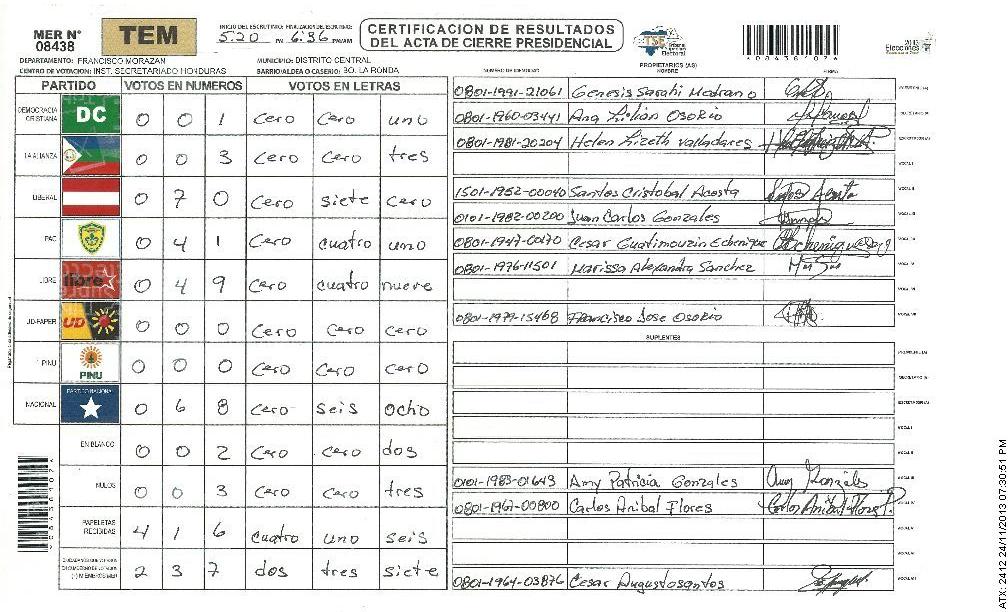 MER N° 08438
TEM
INICIO DEL ESCRUTINIO: FINALIZACION DEL ESCRUTINIO:
5:20 PM 6:36 PM/AM
CERTIFICACION DE RESULTADOS
DEL ACTA DE CIERRE PRESIDENCIAL
TSE Tribunal Supremo Electoral
* 0 8 4 3 8 1 0 2 *
2013 Elecciones
DEPARTAMENTO: FRANCISCO MORAZAN MUNICIPIO: DISTRITO CENTRAL
CENTRO DE VOTACION: INST. SECRETARIADO HONDURAS BARRIO/ALDEA O CASERIO: BO. LA RONDA
NUMERO DE IDENTIDAD PROPIETARIOS (AS) NOMBRE FIRMA
PARTIDO VOTOS EN NUMEROS VOTOS EN LETRAS
DEMOCRACIA CRISTIANA DC 0 0 1 cero cero uno
LA ALIANZA 0 0 3 cero cero tres
LIBERAL 0 7 0 cero siete cero
PAC 0 4 1 cero cuatro uno
LIBRE libre 0 4 9 cero cuatro nueve
UD-FAPER UD 0 0 0 cero cero cero
PINU PINU 0 0 0 cero cero cero
NACIONAL PARTIDO NACIONAL 0 6 8 cero seis ocho
EN BLANCO 0 0 2 cero cero dos
NULOS 0 0 3 cero cero tres
PAPELETAS RECIBIDAS 4 1 6 cuatro uno seis
(+) MIEMBROS MER 2 3 7 dos tres siete
0801-1991-21061 Genesis Sarahi Medrano
0801-1960-03441 Ana Lilian Osorio
0801-1981-20204 Helen Lizeth Valladares
1501-1952-00040 Santos Cristobal Acosta
0101-1982-00200 Juan Carlos Gonzales
0801-1947-00170 Cesar Guatimouzin Echenique
0801-1976-11501 Marissa Alexandra Sanchez
0801-1979-15468 Francisco Jose Osorio
SUPLENTES
0101-1983-01643 Amy Patricia Gonzales
0801-1967-00800 Carlos Anibal Flores
0801-1964-03876 Cesar Augusto santos
ATX: 2412 24/11/2013 07:30:51 PM